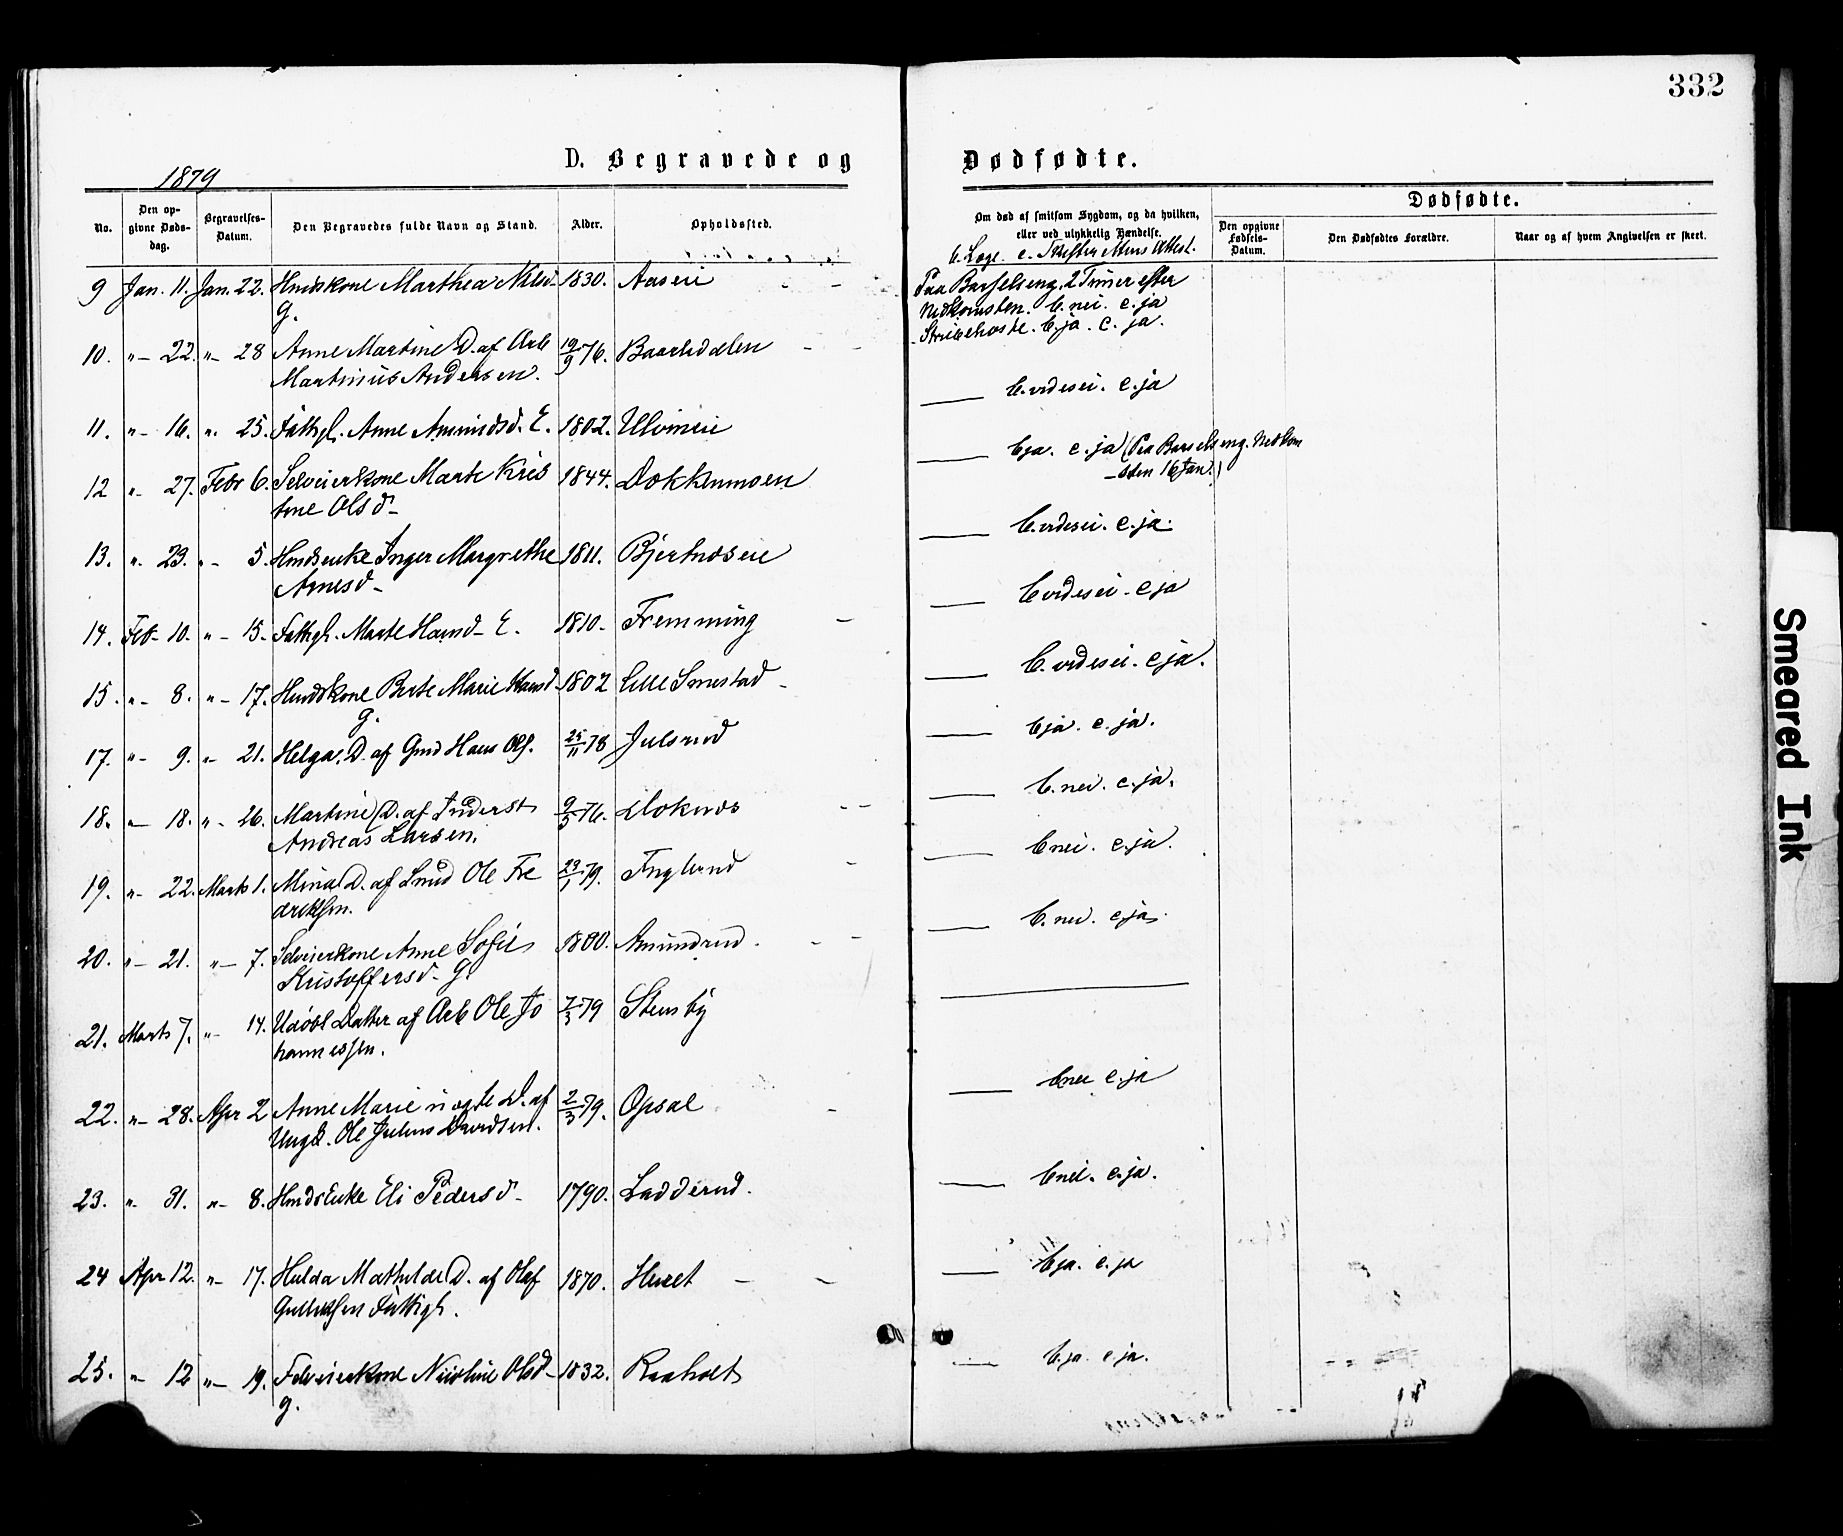 332
D. Begravede og Dødfødte.
1879
No.
Den opgivne Dødsdag.
Begravelses-Datum.
Den Begravedes fulde Navn og Stand.
Alder.
Opholdssted.
Om død af smitsom Sygdom, og da hvilken,
eller ved ulykkelig Hændelse.
b. Læge. c. Skifter
Dødfødte.
Den opgivne Fødsels-Datum.
Den Dødfødtes Forældre.
Naar og af hvem Angivelsen er skeet.
9 Jan. 11. Jan. 22. Hmdskone Marthea Nilsd 1830. Aaseie Paa Barselseng, 2 Timer efter
G. Nedkomsten. b. nei. c. ja
Strubehoste. b. ja. c. ja.
10. "- 22. "- 28 Anne Martine D. af Arb 19/9 76. Baarliddalen
Martinius Andersen.
b. vides ei. c. ja
11. "- 16. "- 25. Fattgl. Anne Amundsd. E. 1802. Ulvineie
b ja. c. ja (Paa Barselseng. Nedkom
sten 16 Jan.)
12 "- 27. Febr 6. Selveierkone Marte Kris 1844. Dokkenmoen
tine Olsd-
b. vides ei. c. ja.
13. "- 23. "- 5. Hmdsenke Inger Margrethe 1811. Bjertnæseie
Arnesd-
b vides ei. c ja
14. Feb- 10. "- 15. Fattgl. Marte Hansd- E. 1810- Fremming
b. vides ei. c ja.
15. "- 8. "- 17. Hmdskone Berte Marie Hansd 1802 Lille Smestad
G.
b ja. c. ja.
17. "- 9. "- 21. Helga, D. af Gmd Hans Ols. 25/11 78 Julsrud
b. nei. c. ja.
18. "- 18. "- 26. Martine D. af Inderst 9/3 76. Doknæs
Andreas Larsen.
b nei. c. ja.
19. "- 22. Marts 1. Mina D. af Smed Ole Fre 23/1 79. Fuglerud
driksen.
b. nei. c. ja.
20. "- 21. "- 7. Selveierkone Anne Sofie 1800. Amundrud.
Kristoffersd- G.
21. Marts 7. "- 14. Udøbt Datter af Arb Ole Jo 7/3 79 Stensby
hannessen.
b nei c. ja
22. "- 28. Apr 2 Anne Marie uægte D. af 2/3 79. Opsal
Ungk. Ole Julius Davidsen.
b nei. c. ja.
23. "- 31. "- 8. Hmdsenke Eli Pedersd- 1790. Ladderud.
b ja. c. ja
24 Apr 12. "- 17. Hulda Mathilde D. af Olaf 1870. Huset
Gulliksen Fattigl.
b. ja. c. ja.
25. "- 12 "- 19. Selveierkone Nicoline Olsd- 1832. Raaholt
G.
Smeared Ink